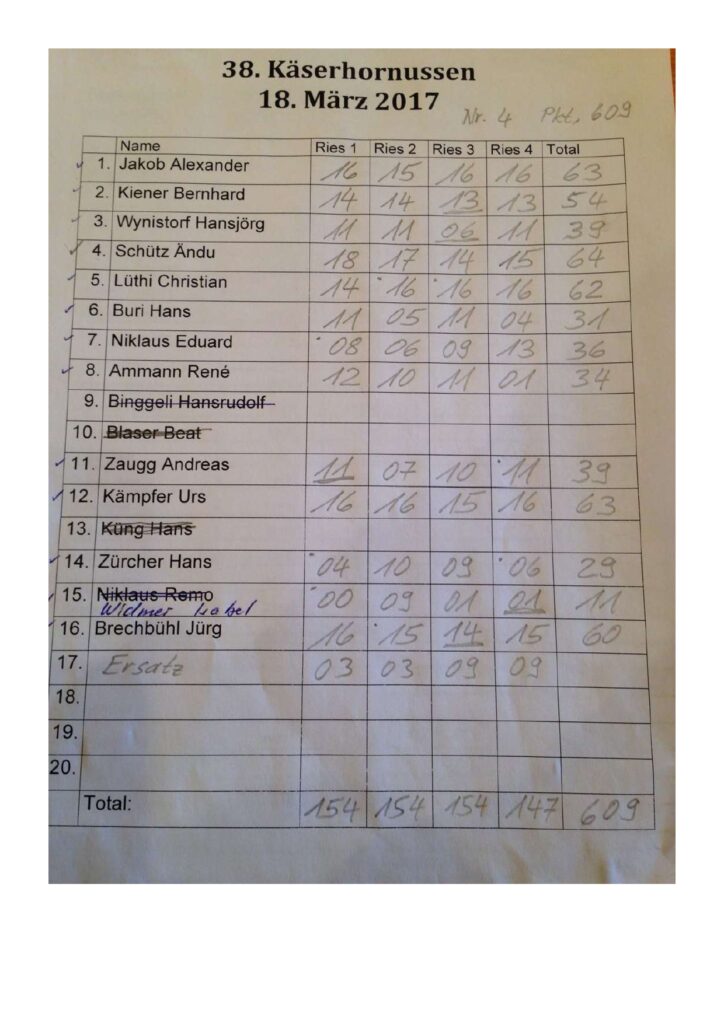 38. Käserhornussen
18. März 2017
Nr. 4 Pkt. 609
Name Ries 1 Ries 2 Ries 3 Ries 4 Total
1. Jakob Alexander 16 15 16 16 63
2. Kiener Bernhard 14 14 13 13 54
3. Wynistorf Hansjörg 11 11 06 11 39
4. Schütz Ändu 18 17 14 15 64
5. Lüthi Christian 14 16 16 16 62
6. Buri Hans 11 05 11 04 31
7. Niklaus Eduard 08 06 09 13 36
8. Ammann René 12 10 11 01 34
9. Binggeli Hansrudolf
10. Blaser Beat
11. Zaugg Andreas 11 07 10 11 39
12. Kämpfer Urs 16 16 15 16 63
13. Küng Hans
14. Zürcher Hans 04 10 09 06 29
15. Niklaus Remo 00 09 01 01 11
Widmer
16. Brechbühl Jürg 16 15 14 15 60
17. Ersatz 03 03 09 09
18.
19.
20.
Total: 154 154 154 147 609